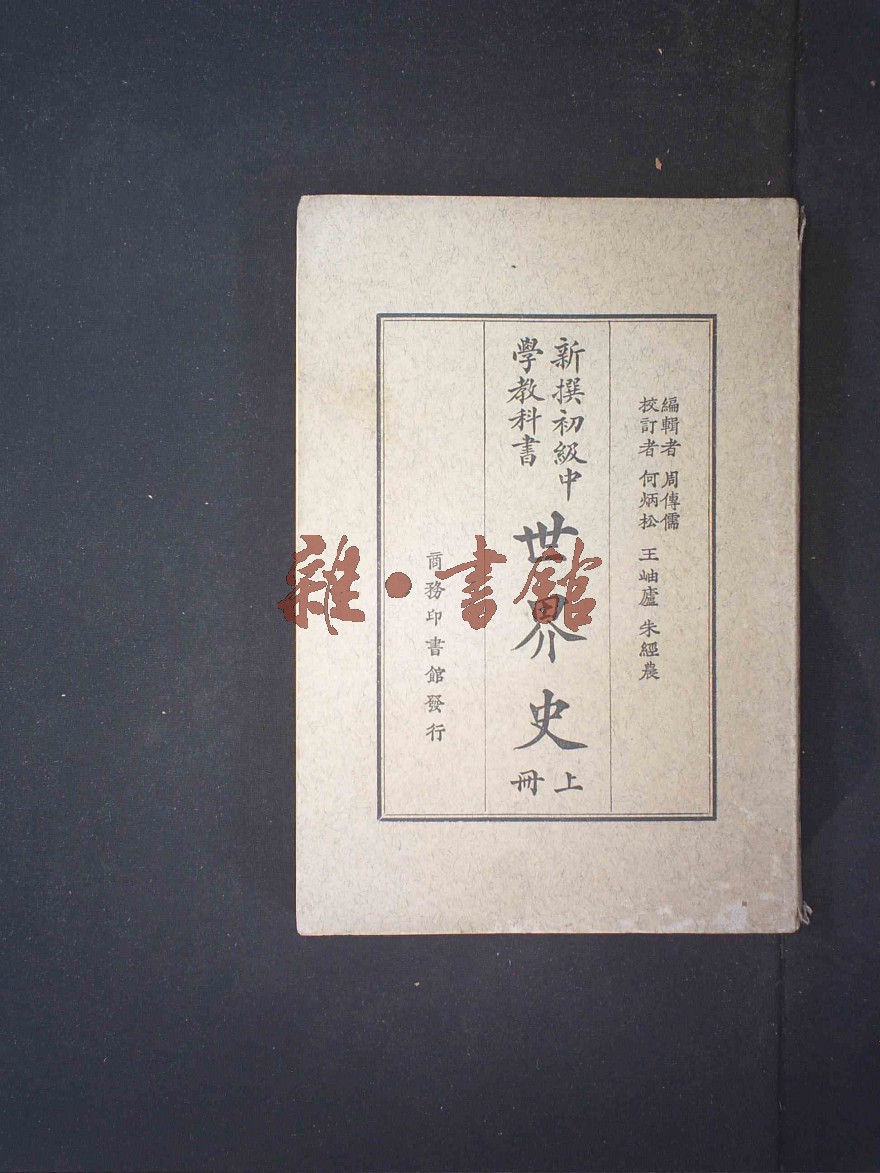 編輯者 周傳儒
校訂者 何炳松 王岫廬 朱經農
新撰初級中
學教科書
世界史
上
冊
商務印書館發行
雜·書館